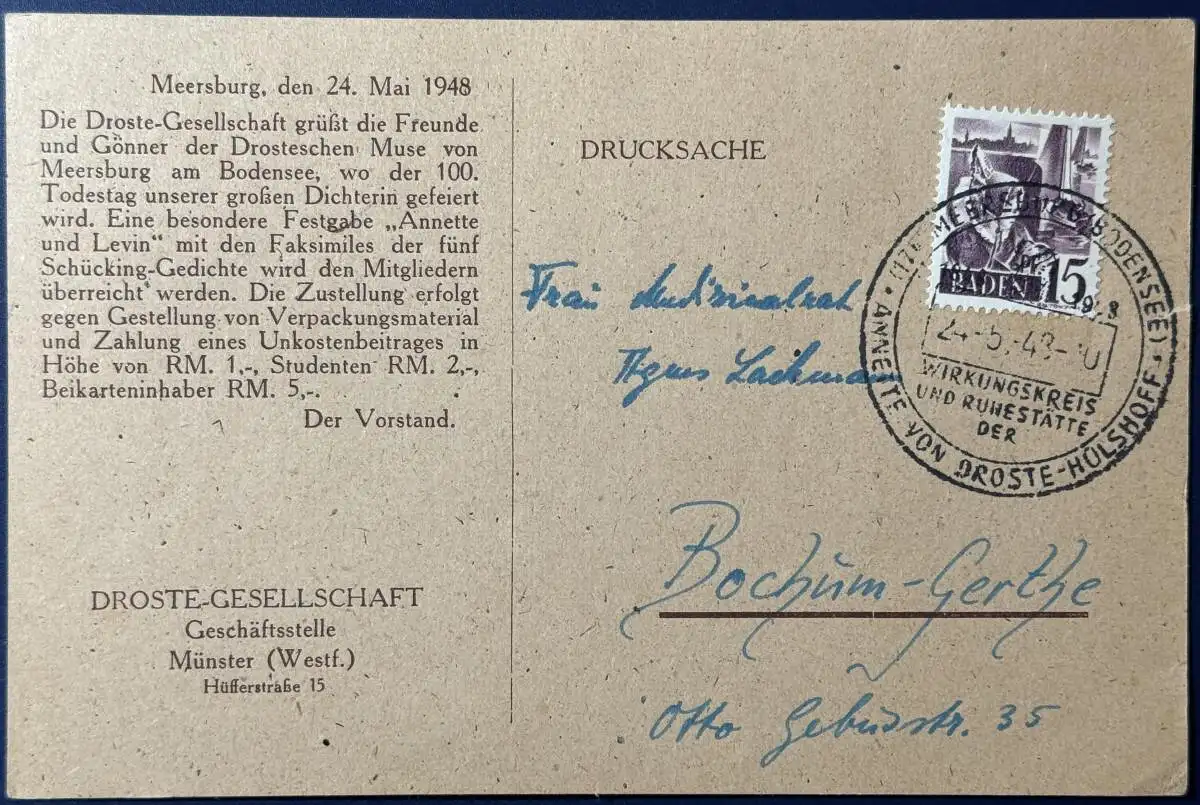 Meersburg, den 24. Mai 1948
Die Droste-Gesellschaft grüßt die Freunde
und Gönner der Drosteschen Muse von
Meersburg am Bodensee, wo der 100.
Todestag unserer großen Dichterin gefeiert
wird. Eine besondere Festgabe „Annette
und Levin" mit den Faksimiles der fünf
Schücking-Gedichte wird den Mitgliedern
überreicht werden. Die Zustellung erfolgt
gegen Gestellung von Verpackungsmaterial
und Zahlung eines Unkostenbeitrages in
Höhe von RM. 1,-, Studenten RM. 2,-,
Beikarteninhaber RM. 5,-.
Der Vorstand.
DROSTE-GESELLSCHAFT
Geschäftsstelle
Münster (Westf.)
Hüfferstraße 15
DRUCKSACHE
BADEN 15
(BODENSEE)
24.-5.-48-
WIRKUNGSKREIS
UND RUHESTÄTTE
DER
ANNETTE VON DROSTE-HÜLSHOFF
Frau Medizinalrat
Agnes
Bochum-Gerthe
Otto 35